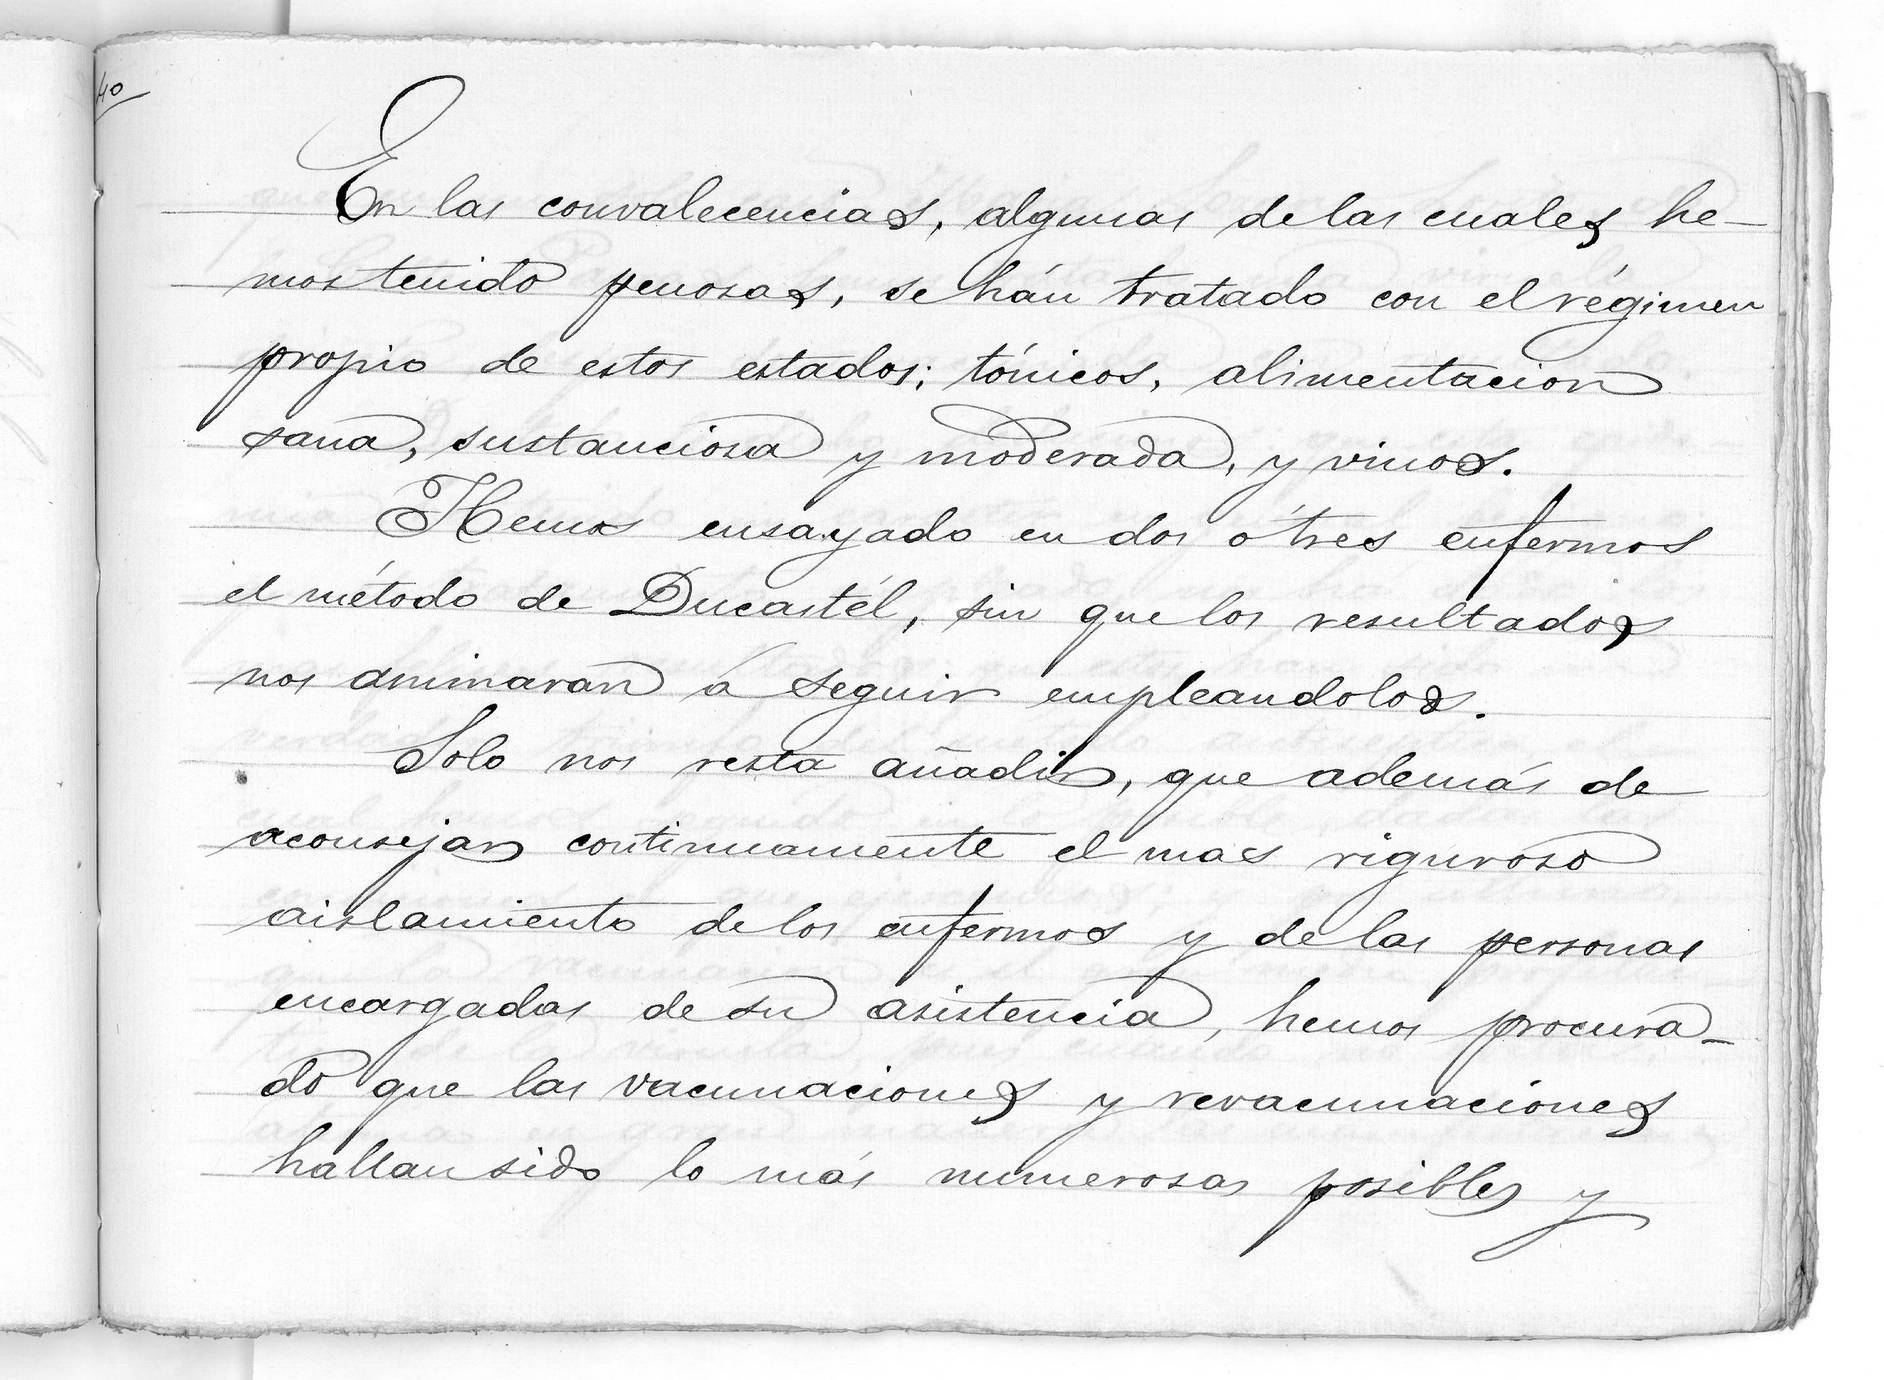 40
En las convalecencias, algunas de las cuales he-
mos tenido penosas, se hán tratado con el régimen
propio de estos estados; tónicos, alimentacion
sana, sustanciosa y moderada, y vinos.
Hemos ensayado en dos ó tres enfermos
el método de Ducastél, sin que los resultados
nos animaran á seguir empleandolos.
Solo nos resta añadir, que además de
aconsejar continuamente el mas riguroso
aislamiento de los enfermos y de las personas
encargadas de su asistencia, hemos procura-
do que las vacunaciones y revacunaciones
hallan sido lo más numerosas posibles y